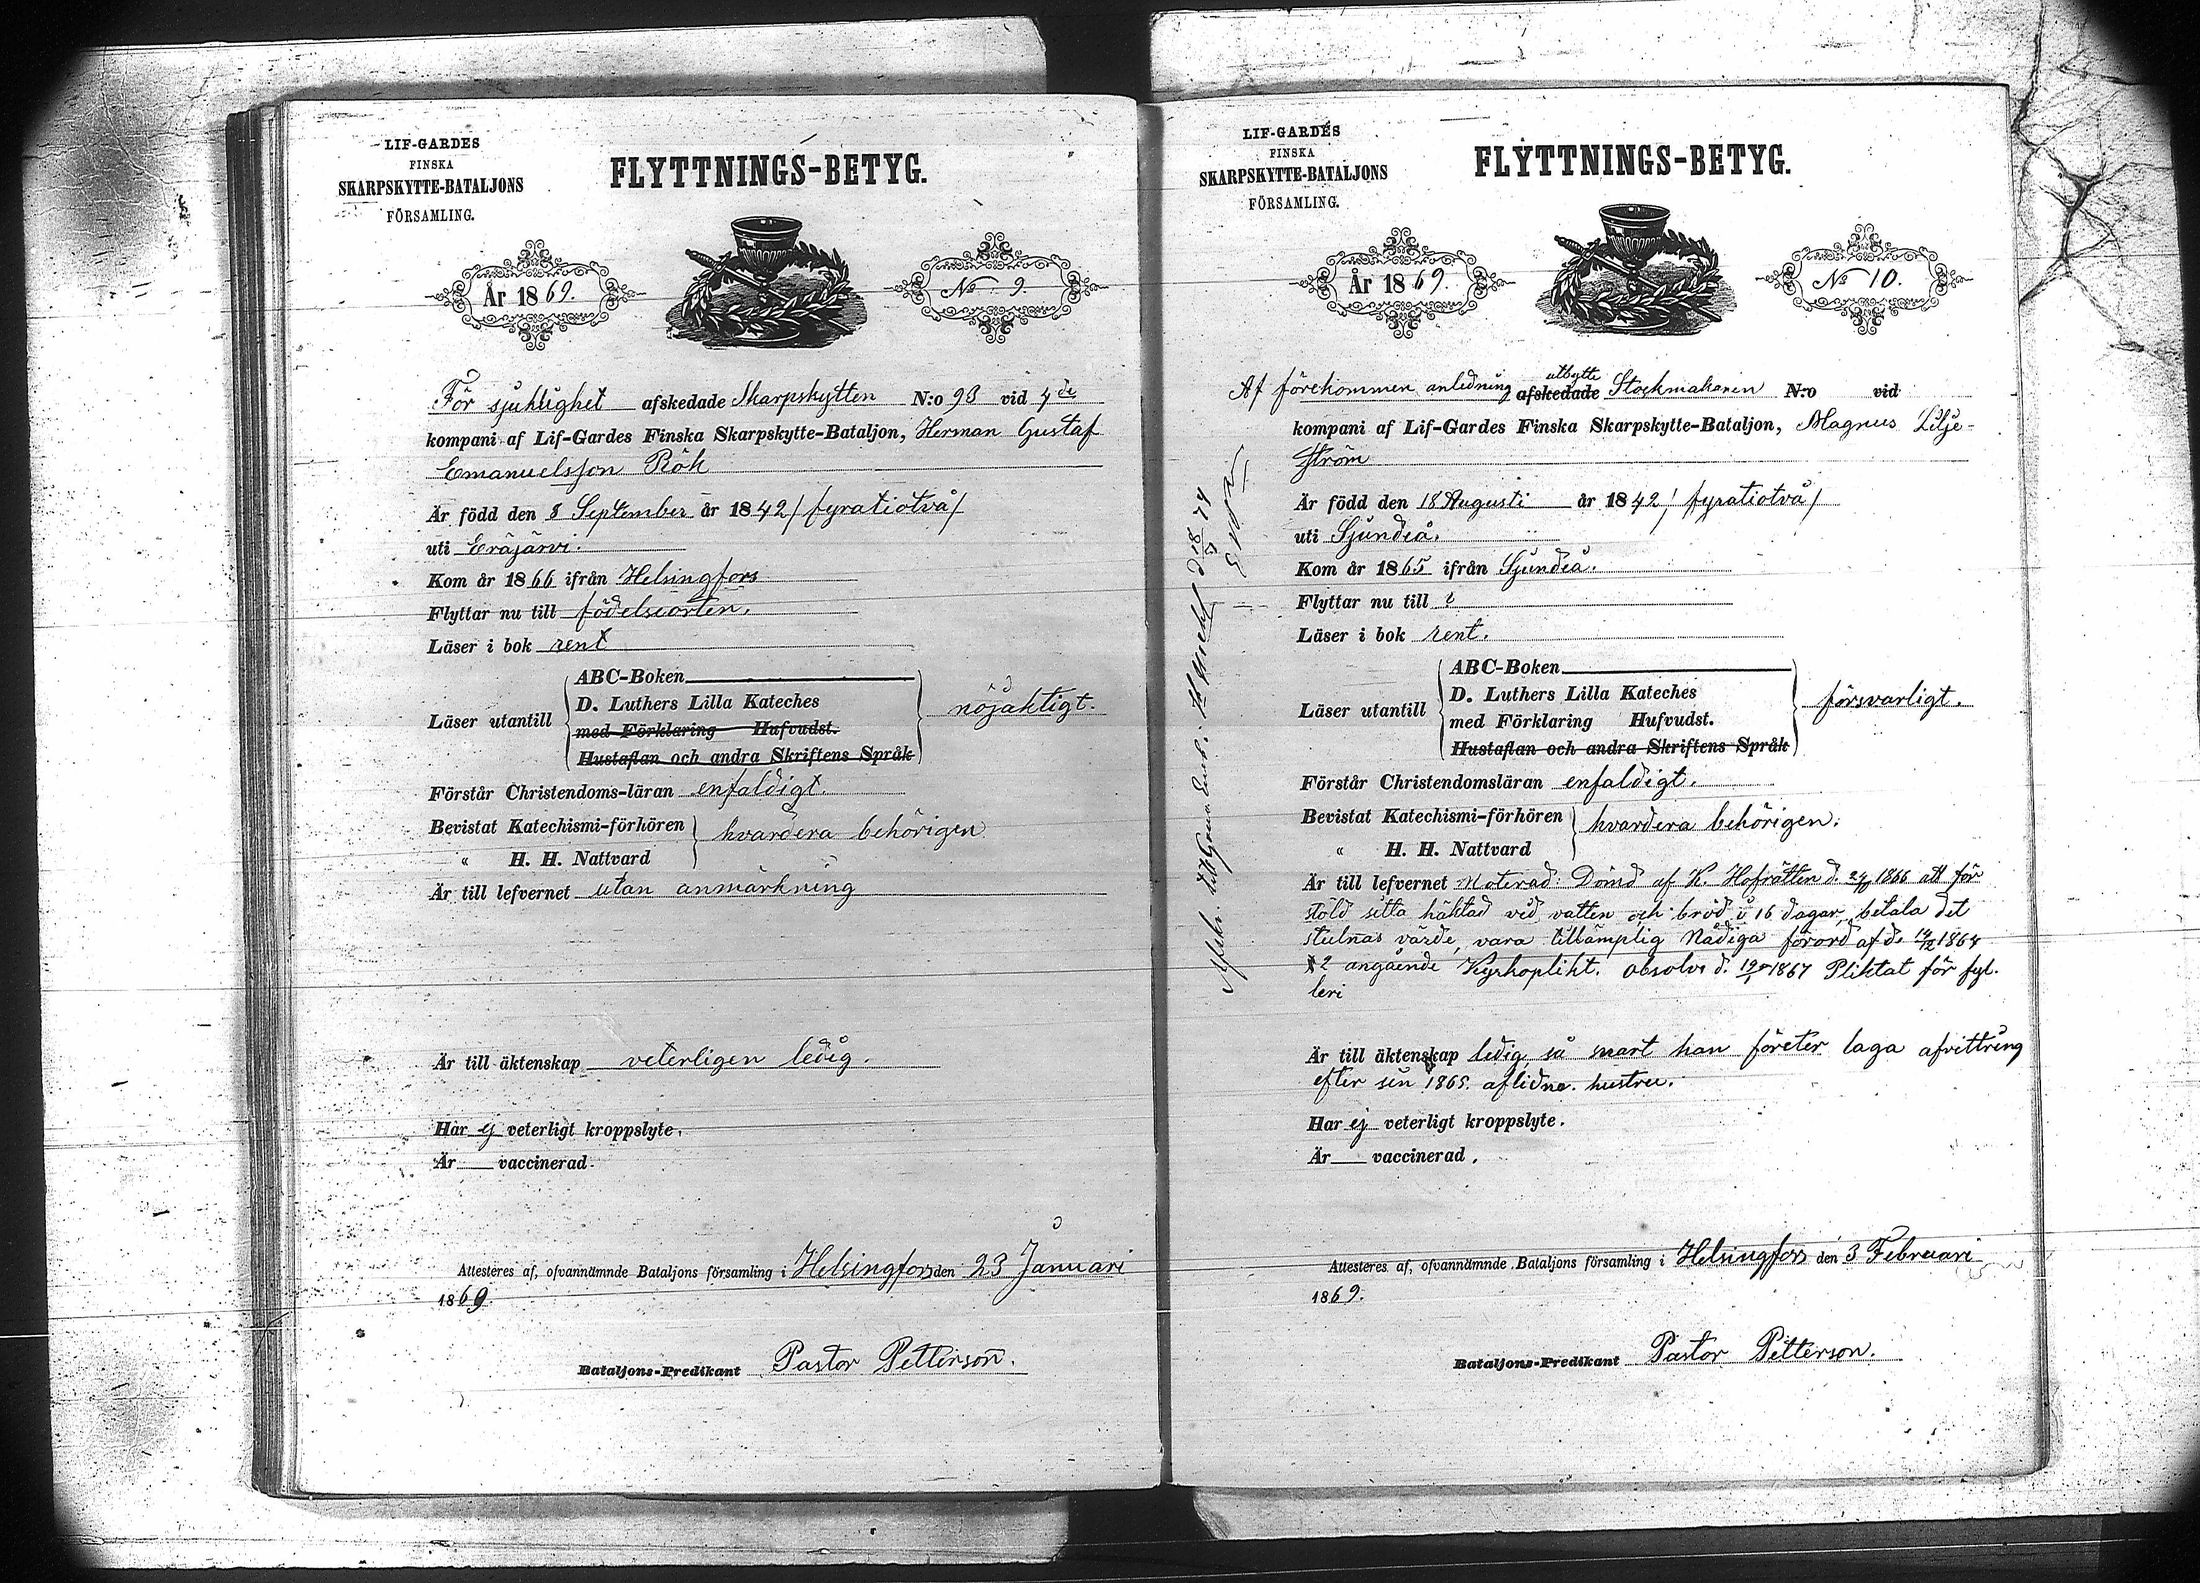 LIF-GARDES
FINSKA
SKARPSKYTTE-BATALJONS
FÖRSAMLING.
FLYTTNINGS-BETYG.
År 1869.
No 9.
För sjuklighet afskedade Skarpskytten N:o 93 vid 4de
kompani af Lif-Gardes Finska Skarpskytte-Bataljon, Herman Gustaf
Emanuelsson Rök
Är född den 8 September år 1842 / fyratiotvå /
uti Eräjärvi.
Kom år 1866 ifrån Helsingfors
Flyttar nu till födelseorten.
Läser i bok rent
Läser utantill
ABC-Boken
D. Luthers Lilla Kateches
med Förklaring Hufvudst.
Hustaflan och andra Skriftens Språk
nöjaktigt.
Förstår Christendoms-läran enfaldigt.
Bevistat Katechismi-förhören
" H. H. Nattvard
hvardera behörigen
Är till lefvernet utan anmärkning
Är till äktenskap veterligen ledig.
Har ej veterligt kroppslyte.
Är vaccinerad.
Attesteres af, ofvannämnde Bataljons församling i Helsingfors den 23 Januari
1869.
Bataljons-Predikant Pastor Petterson.
LIF-GARDES
FINSKA
SKARPSKYTTE-BATALJONS
FÖRSAMLING.
FLYTTNINGS-BETYG.
År 1869.
No 10.
utbytte
Af förekommen anledning afskedade Stockmakaren N:o vid
kompani af Lif-Gardes Finska Skarpskytte-Bataljon, Magnus Lilje-
ström
Är född den 18 Augusti år 1842 / fyratiotvå /
uti Sjundeå.
Kom år 1865 ifrån Sjundeå.
Flyttar nu till
Läser i bok rent.
Läser utantill
ABC-Boken
D. Luthers Lilla Kateches
med Förklaring Hufvudst.
Hustaflan och andra Skriftens Språk
försvarligt.
Förstår Christendomsläran enfaldigt.
Bevistat Katechismi-förhören
" H. H. Nattvard
hvardera behörigen.
Är till lefvernet noterad: Dömd af K. Hofrätten d. 1866 att för
stöld sitta häktad vid vatten och bröd i 16 dagar, betala det
stulnas värde, vara tillämplig Nådiga förord af d. 14/12 1864
§ 2 angående Kyrkoplikt. Absolv. d. 1867 Pliktat för fyl-
leri
Är till äktenskap ledig, så snart han företer laga afvittring
efter sin 1865 aflidna hustru.
Har ej veterligt kroppslyte.
Är vaccinerad.
Attesteres af, ofvannämnde Bataljons församling i Helsingfors den 3 Februari
1869.
Bataljons-Predikant Pastor Petterson.